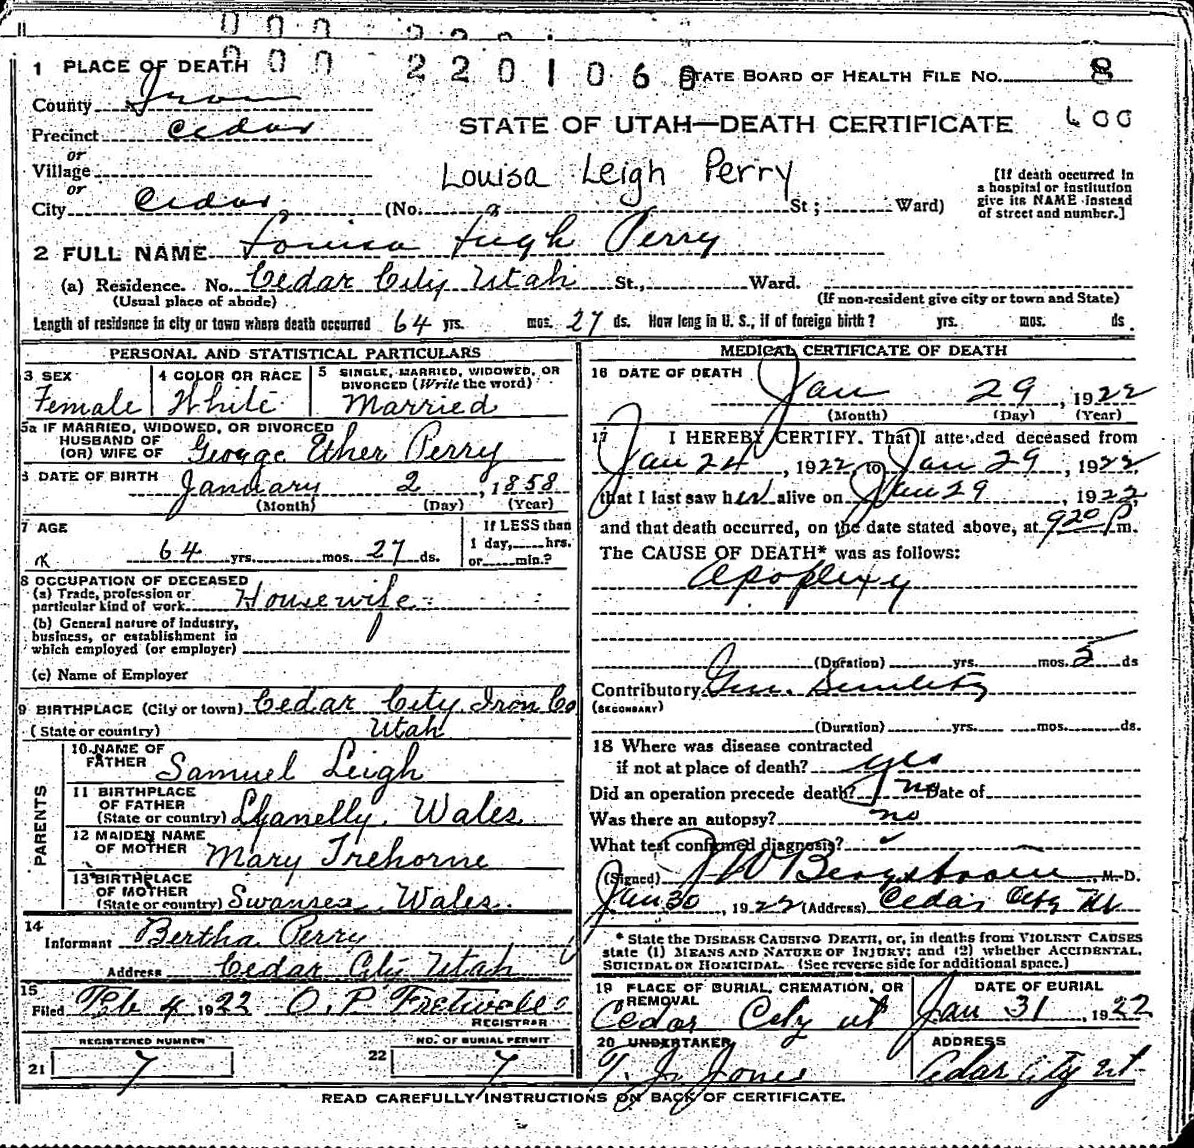 000 2201060
1 PLACE OF DEATH
STATE BOARD OF HEALTH FILE NO. 8
County Iron
600
Precinct Cedar
STATE OF UTAH—DEATH CERTIFICATE
or
Village
Louisa Leigh Perry
[If death occurred in
a hospital or institution
give its NAME instead
of street and number.]
or
City Cedar (No. St; Ward)
2 FULL NAME Louisa Leigh Perry
(a) Residence. No. Cedar City Utah St., Ward.
(Usual place of abode) (If non-resident give city or town and State)
Length of residence in city or town where death occurred 64 yrs. mos. 27 ds. How long in U. S., if of foreign birth? yrs. mos. ds.
PERSONAL AND STATISTICAL PARTICULARS
3 SEX Female
4 COLOR OR RACE White
5 SINGLE, MARRIED, WIDOWED, OR
DIVORCED (Write the word)
Married
5a IF MARRIED, WIDOWED, OR DIVORCED
HUSBAND OF
(OR) WIFE OF George Ether Perry
6 DATE OF BIRTH January 2, 1858
(Month) (Day) (Year)
7 AGE
64 yrs. mos. 27 ds.
If LESS than
1 day, hrs.
or min.?
8 OCCUPATION OF DECEASED
(a) Trade, profession or
particular kind of work Housewife
(b) General nature of industry,
business, or establishment in
which employed (or employer)
(c) Name of Employer
9 BIRTHPLACE (City or town) Cedar City Iron Co
(State or country) Utah
PARENTS
10 NAME OF
FATHER Samuel Leigh
11 BIRTHPLACE
OF FATHER
(State or country) Llanelly. Wales
12 MAIDEN NAME
OF MOTHER Mary Trehorne
13 BIRTHPLACE
OF MOTHER
(State or country) Swansea, Wales
14
Informant Bertha Perry
Address Cedar City Utah
15
Filed Feb 4 1922 O. P. Fretwell
REGISTRAR
REGISTERED NUMBER
21 7
NO. OF BURIAL PERMIT
22 7
MEDICAL CERTIFICATE OF DEATH
16 DATE OF DEATH
Jan 29, 1922
(Month) (Day) (Year)
17 I HEREBY CERTIFY. That I attended deceased from
Jan 24, 1922 to Jan 29, 1922
that I last saw her alive on Jan 29, 1922
and that death occurred, on the date stated above, at 920 P m.
The CAUSE OF DEATH* was as follows:
Apoplexy
(Duration) yrs. mos. 5 ds
Contributory Gen.
(SECONDARY)
(Duration) yrs. mos. ds.
18 Where was disease contracted
if not at place of death? yes
Did an operation precede death? no Date of
Was there an autopsy? no
What test confirmed diagnosis?
(Signed) Bergstrom, M.D.
Jan 30, 1922 (Address) Cedar City Ut
* State the DISEASE CAUSING DEATH, or, in deaths from VIOLENT CAUSES
state (1) MEANS AND NATURE OF INJURY; and (2) whether ACCIDENTAL,
SUICIDAL OR HOMICIDAL. (See reverse side for additional space.)
19 PLACE OF BURIAL, CREMATION, OR
REMOVAL
Cedar City ut
DATE OF BURIAL
Jan 31, 1922
20 UNDERTAKER
T. J. Jones
ADDRESS
Cedar City ut
READ CAREFULLY INSTRUCTIONS ON BACK OF CERTIFICATE.